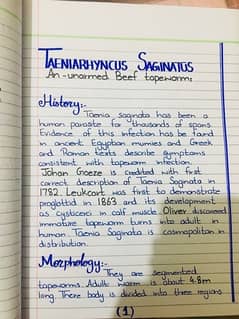 TAENIARHYNCUS SAGINATUS
An-unarmed Beef tapeworm:
History:-
Taenia saginata has been a
human parasite for thousands of years
Evidence of this infection has be found
in ancient Egyptian mumies and Greek
and Roman texts describe symptoms
consistent with tapeworm infection.
Johan Goeze is credited with first
correct description of Taenia Saginata in
1782. Leukcart was first to demonstrate
proglottid in 1863 and its development
as cysticerci in calf muscle Oliver discovered
immature tapeworm turns into adult in
human. Taenia Saginata is cosmopolitan in
distribution.
Morphology:-
They are segmented
tapeworms. Adult worm is about 4-8m
long. There body is divided into three regions
(1)